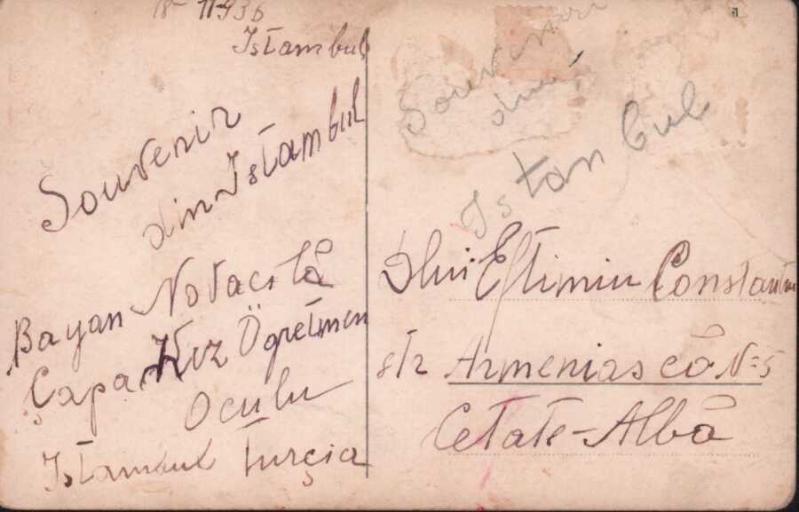 11 936
Istambul
Souvenir
din Istambul
Bayan Novacilă
Çapa Kız Ögretmen
Oculu
Istambul Turcia
Souvenir
din
Istanbul
Dlui Eftimiu Constantin
str Armenias că No 5
Cetate-Albă